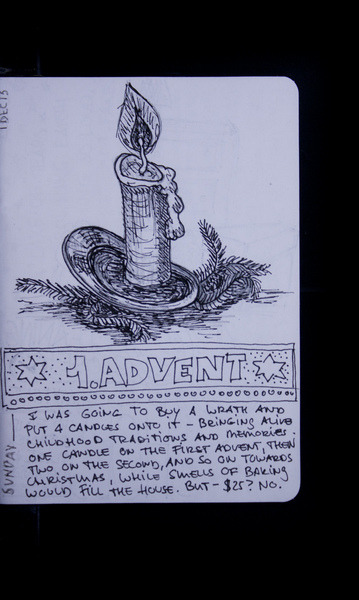 1 DEC 13
1. ADVENT
SUNDAY
I WAS GOING TO BUY A WRATH AND
PUT 4 CANDLES ONTO IT – BRINGING ALIVE
CHILDHOOD TRADITIONS AND MEMORIES.
ONE CANDLE ON THE FIRST ADVENT, THEN
TWO ON THE SECOND, AND SO ON TOWARDS
CHRISTMAS, WHILE SMELLS OF BAKING
WOULD FILL THE HOUSE. BUT – $25? NO.